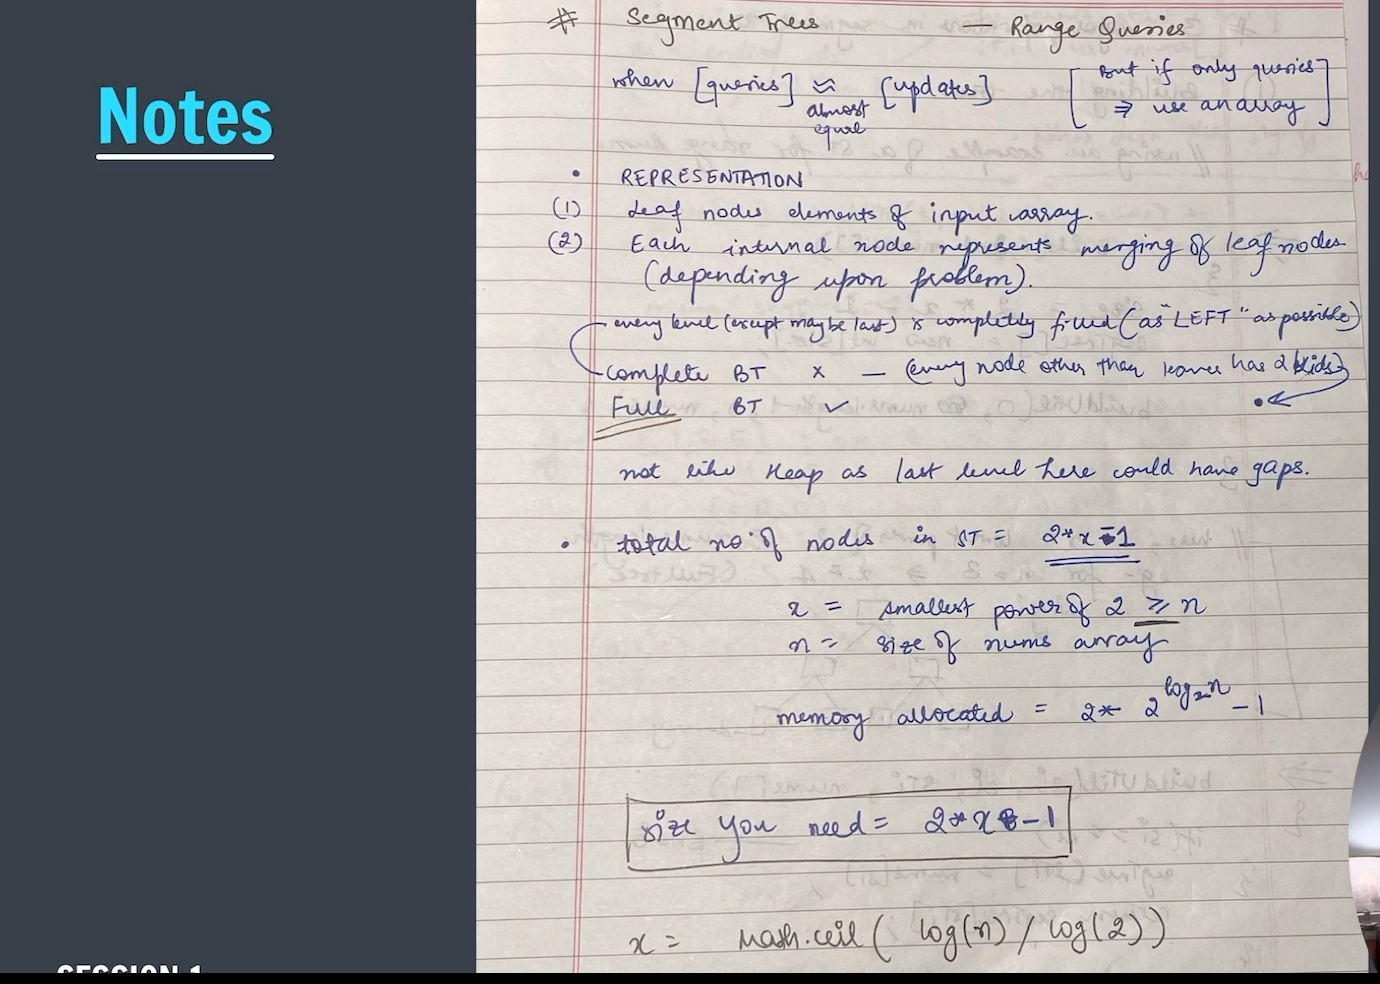 Notes
# Segment Trees — Range Queries
when [queries] ≈ [updates] [But if only queries
almost equal ⇒ use an array]
• REPRESENTATION
(1) Leaf nodes elements of input array.
(2) Each internal node represents merging of leaf nodes
(depending upon problem).
every level (except maybe last) is completely filled (as "LEFT" as possible)
complete BT x — (every node other than leaves has 2 kids)
Full BT ✓
not like Heap as last level here could have gaps.
• total no. of nodes in ST = 2*x-1
x = smallest power of 2 ≥ n
n = size of nums array
memory allocated = 2* 2^log₂n - 1
size you need = 2*x-1
x = Math.ceil( log(n) / log(2))
SESSION 1